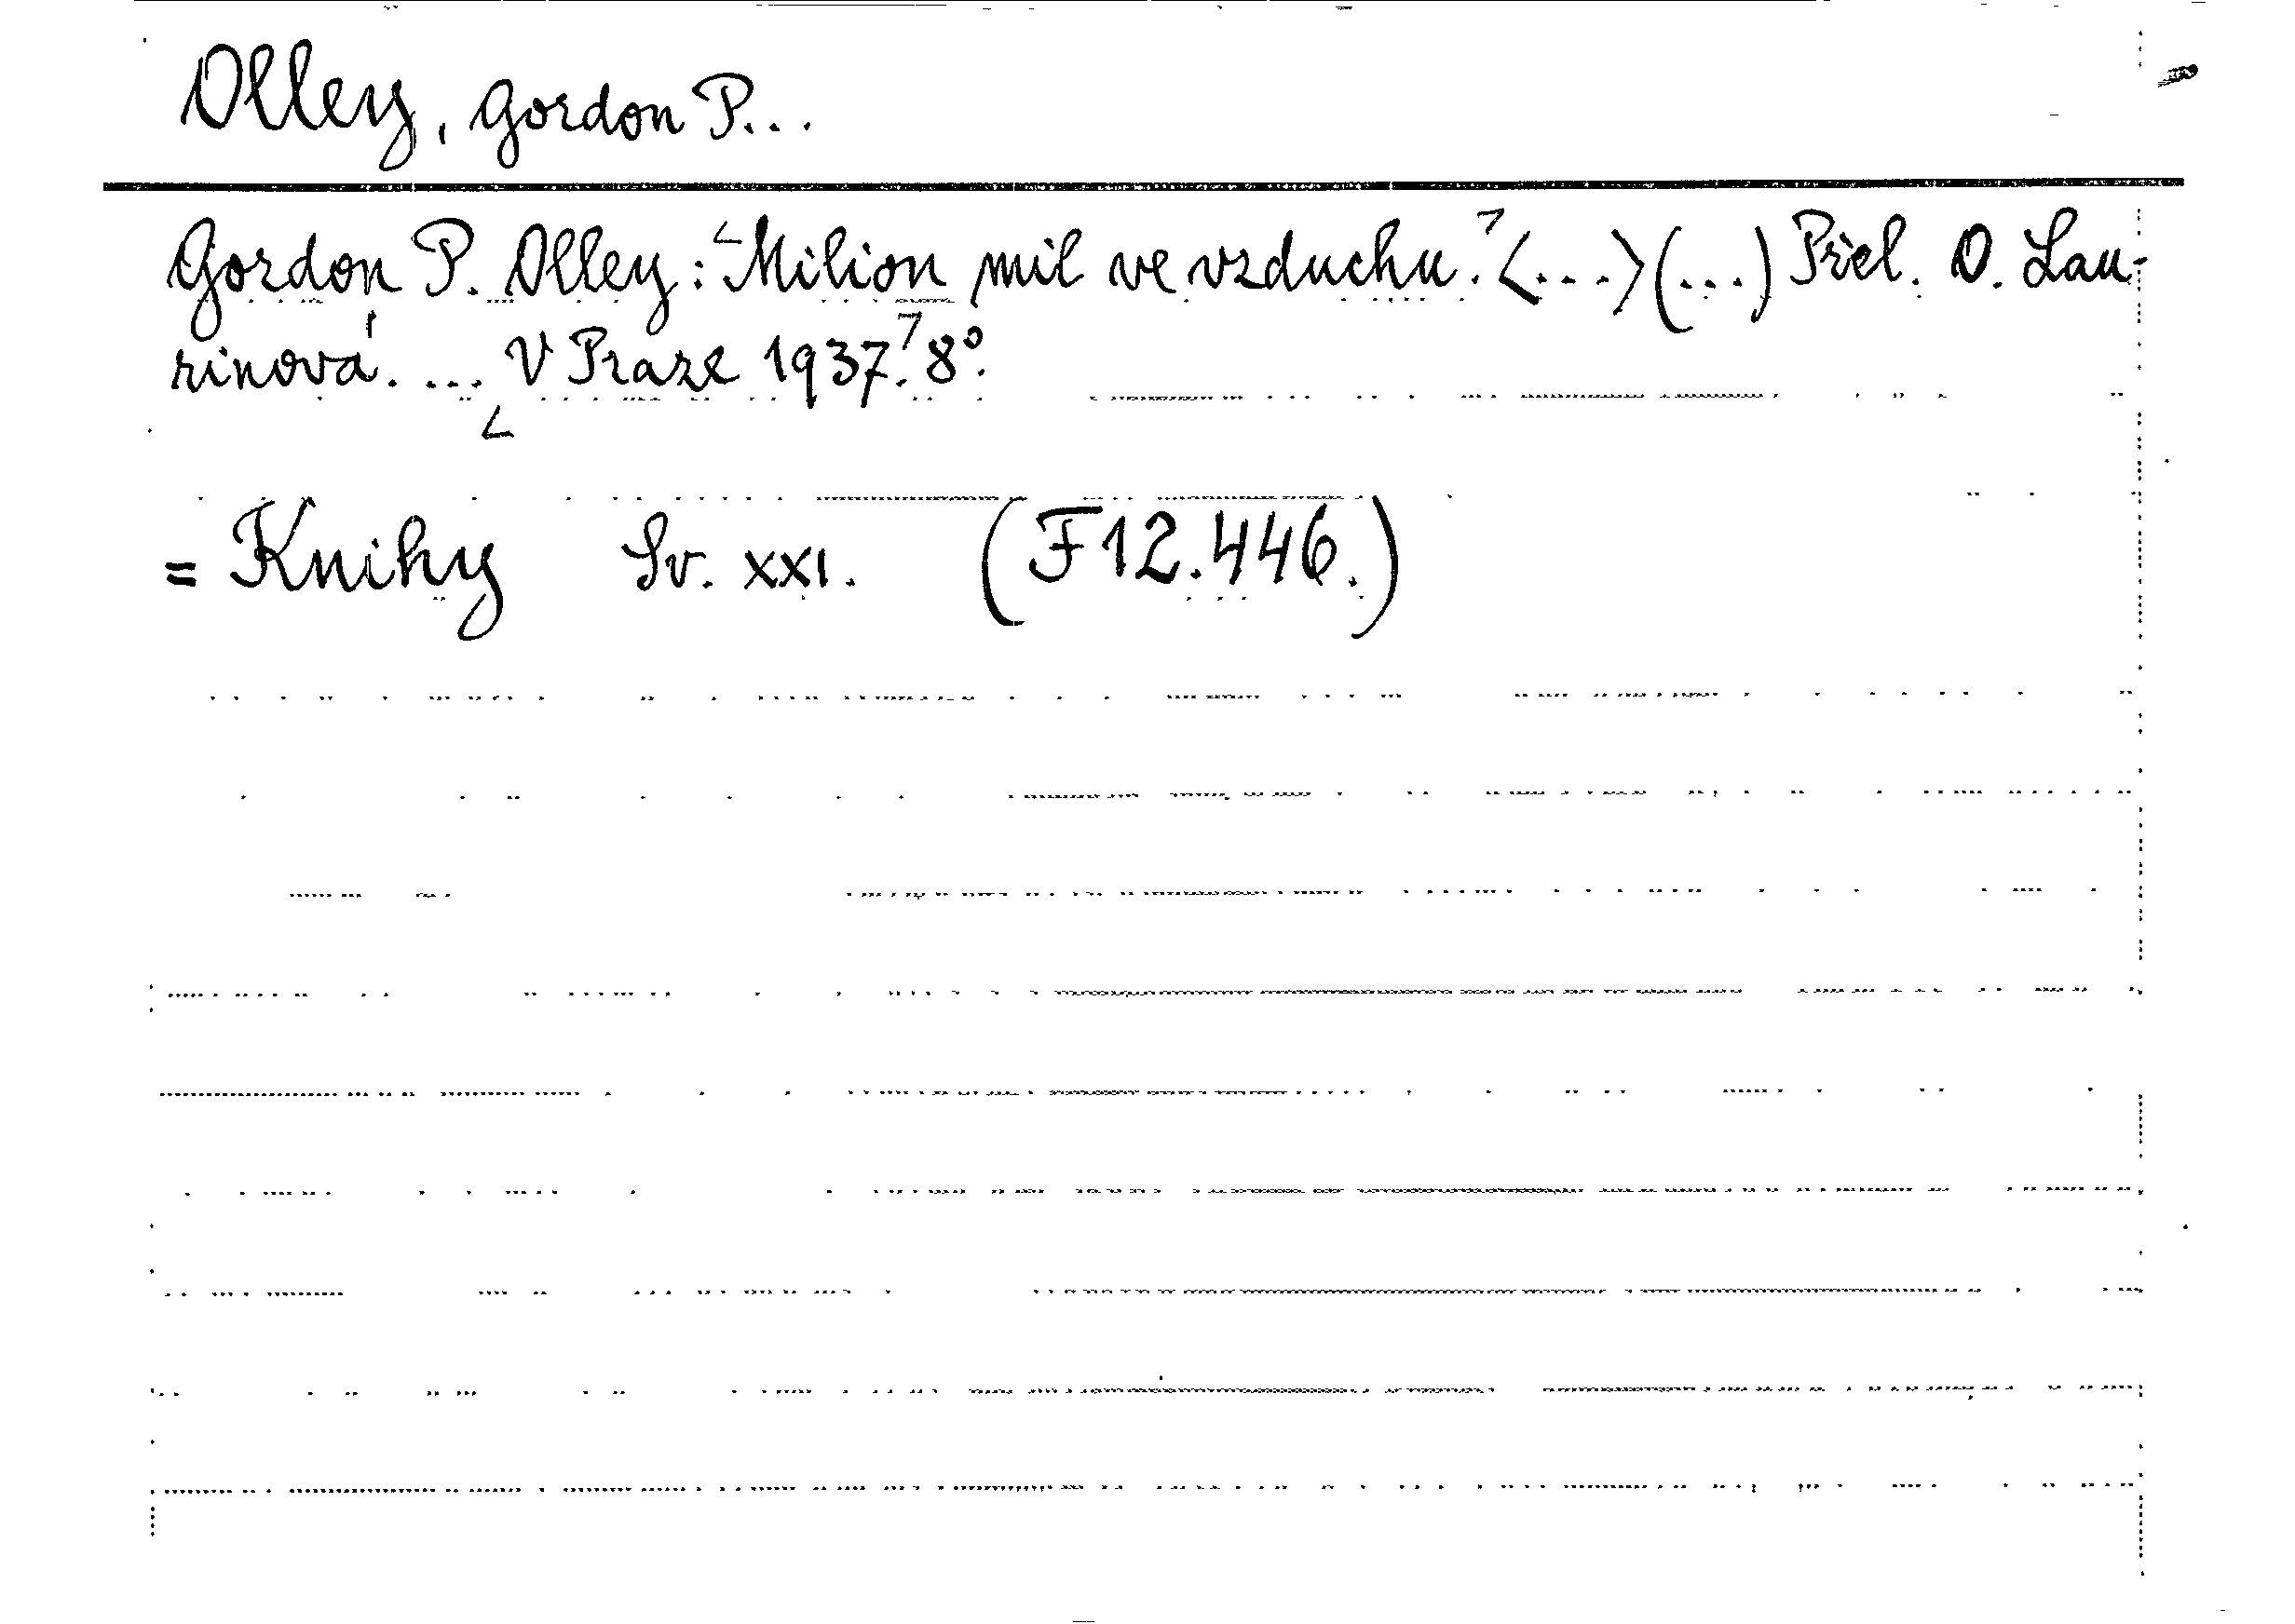 Olley, Gordon P...
Gordon P. Olley: ∠Milion mil ve vzduchu.⁊ <...> (...) Přel. O. Lau-
rinová. ... ∠V Praze 1937.⁊ 8°.
= Knihy Sv. XXI. (F 12.446.)